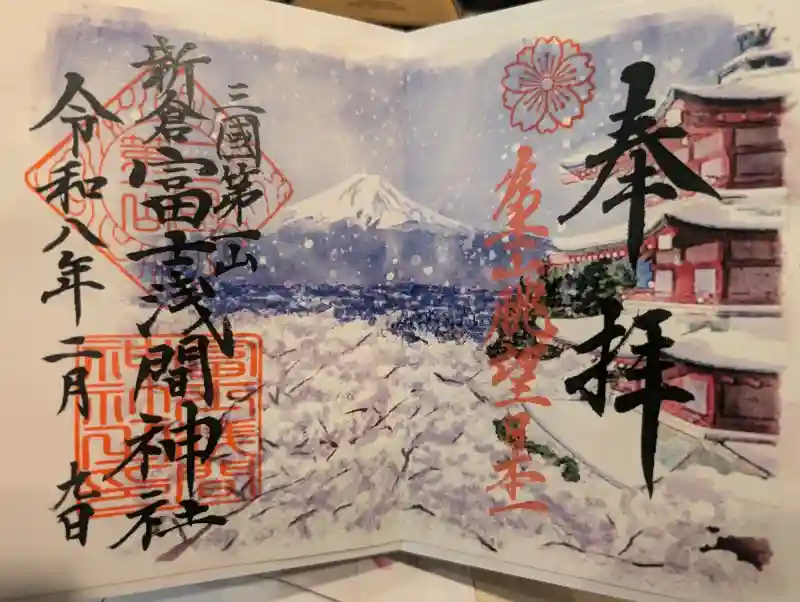 奉拝
富士山眺望日本一
三國第一山
新倉富士浅間神社
令和八年二月九日